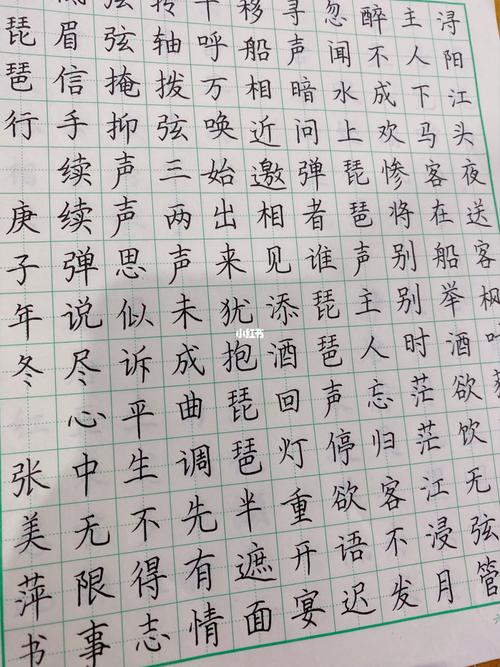 浔阳江头夜送客枫
主人下马客在船举酒欲饮无弦管
醉不成欢惨将别别时茫茫江浸月
忽闻水上琵琶声主人忘归客不发
寻声暗问弹者谁琵琶声停欲语迟
移船相近邀相见添酒回灯重开宴
千呼万唤始出来犹抱琵琶半遮面
转轴拨弦三两声未成曲调先有情
弦弦掩抑声声思似诉平生不得志
眉信手续续弹说尽心中无限事
琵琶行 庚子年冬 张美萍书
小红书